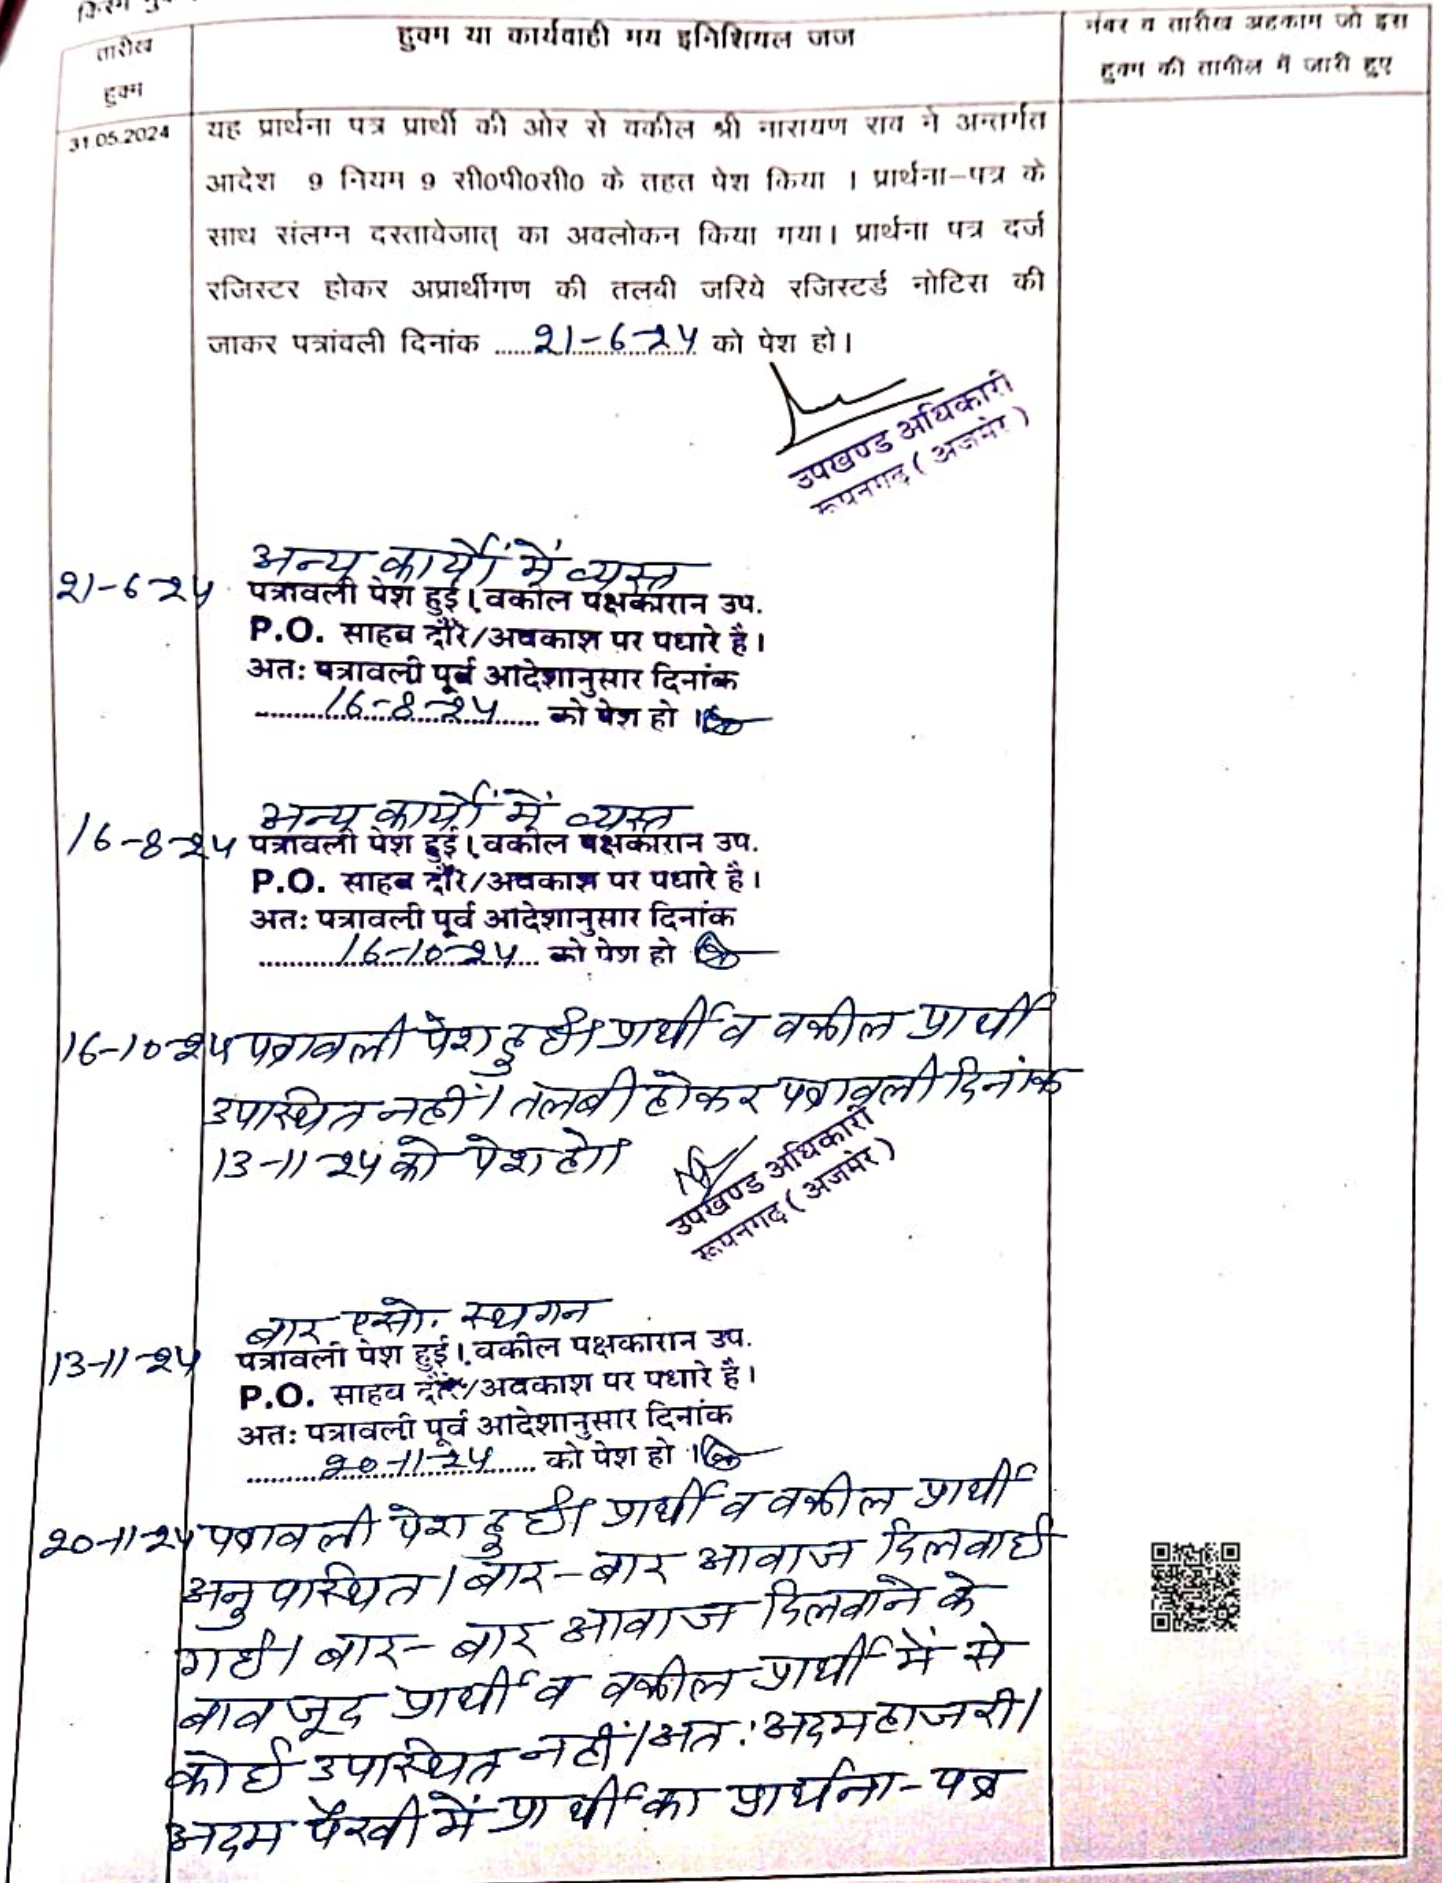 तारीख
हुक्म
हुक्म या कार्यवाही मय इनिशियल जज
नंबर व तारीख अहकाम जो इस
हुक्म की तामील में जारी हुए
31.05.2024
यह प्रार्थना पत्र प्रार्थी की ओर से वकील श्री नारायण राव ने अन्तर्गत
आदेश 9 नियम 9 सी0पी0सी0 के तहत पेश किया । प्रार्थना-पत्र के
साथ संलग्न दस्तावेजात् का अवलोकन किया गया। प्रार्थना पत्र दर्ज
रजिस्टर होकर अप्रार्थीगण की तलवी जरिये रजिस्टर्ड नोटिस की
जाकर पत्रांवली दिनांक ......21-6-24...... को पेश हो।
उपखण्ड अधिकारी
रूपनगढ़ ( अजमेर )
अन्य कार्यों में व्यस्त
21-6-24 पत्रावली पेश हुई।, वकील पक्षकारान उप.
P.O. साहब दौरे/अवकाश पर पधारे है।
अतः पत्रावली पूर्व आदेशानुसार दिनांक
......16-8-24...... को पेश हो ।
अन्य कार्यों में व्यस्त
16-8-24 पत्रावली पेश हुई।, वकील पक्षकारान उप.
P.O. साहब दौरे/अवकाश पर पधारे है।
अतः पत्रावली पूर्व आदेशानुसार दिनांक
......16-10-24...... को पेश हो
16-10-24 पत्रावली पेश हुई। प्रार्थी व वकील प्रार्थी
उपस्थित नहीं। तलबी होकर पत्रावली दिनांक
13-11-24 को पेश हो।
उपखण्ड अधिकारी
रूपनगढ़ ( अजमेर )
बार एसो. स्थगन
13-11-24 पत्रावली पेश हुई।, वकील पक्षकारान उप.
P.O. साहब दौरे/अवकाश पर पधारे है।
अतः पत्रावली पूर्व आदेशानुसार दिनांक
......20-11-24...... को पेश हो ।
20-11-24 पत्रावली पेश हुई। प्रार्थी व वकील प्रार्थी
अनुपस्थित। बार-बार आवाज दिलवाई
गई। बार-बार आवाज दिलवाने के
बावजूद प्रार्थी व वकील प्रार्थी में से
कोई उपस्थित नहीं। अत: अदम हाजरी।
अदम पैरवी में प्रार्थी का प्रार्थना-पत्र